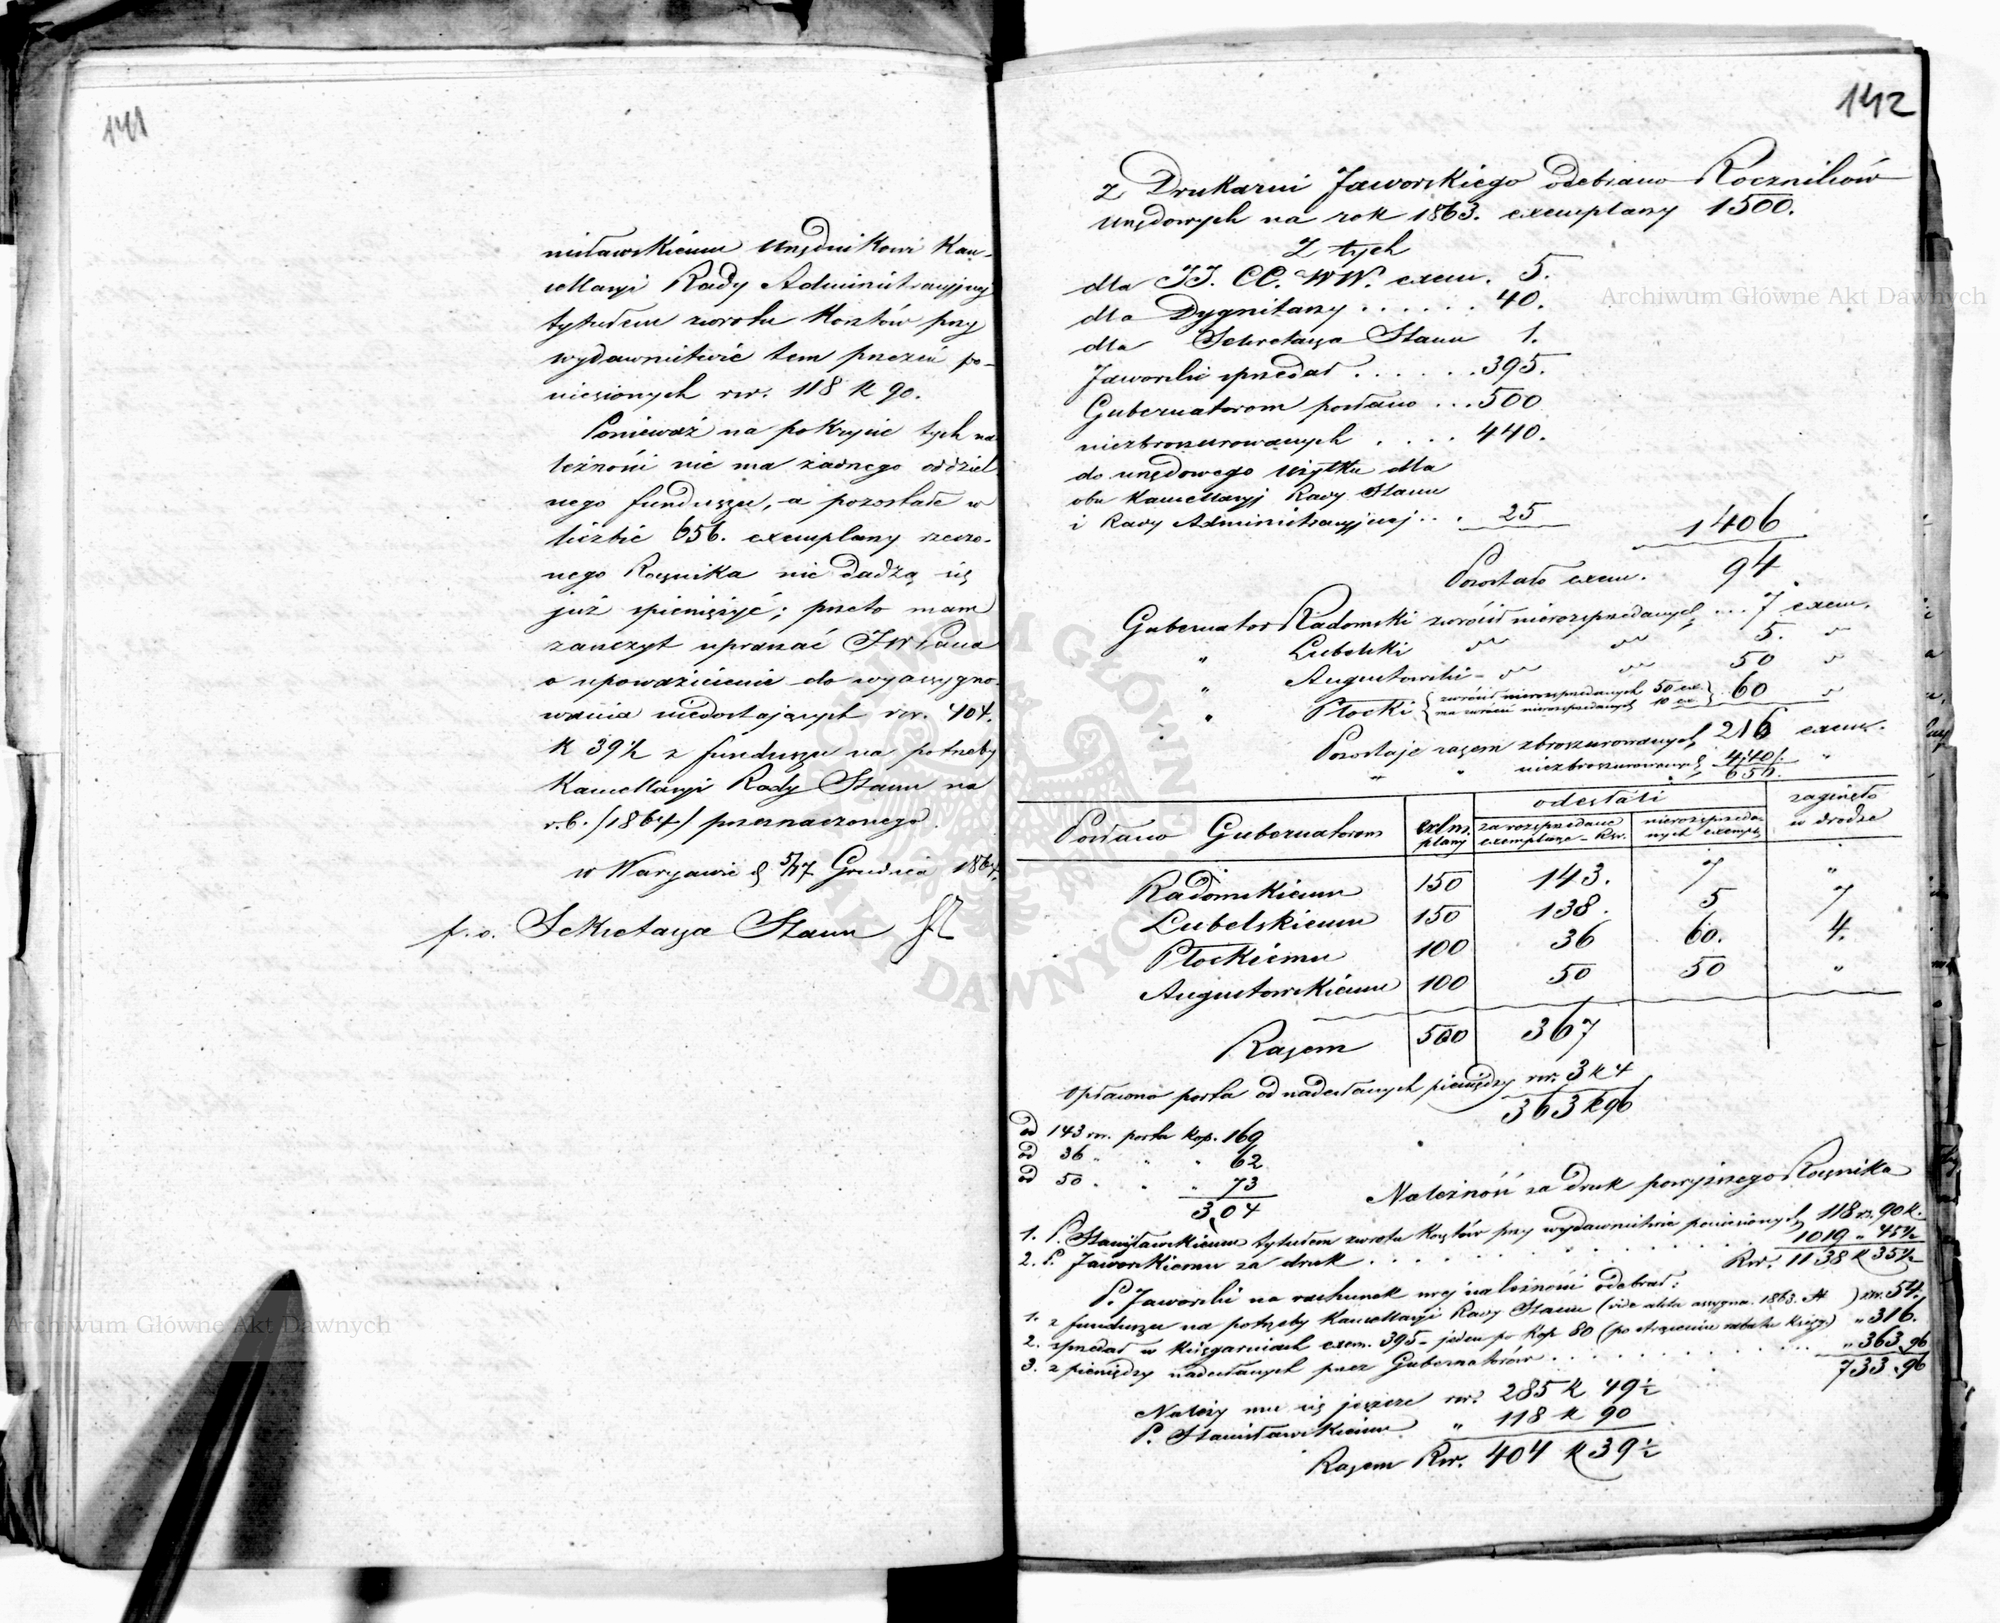 141
nisławskiemu Urzędnikowi Kan-
cellaryi Rady Administracyjnej
tytułem zwrotu kosztów przy
wydawnictwie tem przezeń po-
niesionych rsr. 118 k 90.
Ponieważ na pokrycie tych na
leżności nie ma żadnego oddziel
nego funduszu, a pozostałe w
liczbie 656. exemplarzy rzeczo-
nego Rocznika nie dadzą się
już spieniężyć; przeto mam
zaszczyt upraszać JWPana
o upoważnienie do wyassygno-
wania niedostających rsr. 404.
k 39½ z funduszu na potrzeby
Kancellaryi Rady Stanu na
r. b. /1864/ przeznaczonego.
w Warszawie d 5/17 Grudnia 1864.
p. o. Sekretarza Stanu
142
Z Drukarni Jaworskiego odebrano Roczników
Urzędowych na rok 1863. exemplarzy 1500.
Z tych
dla JJ. CC. WW. exem. 5.
dla Dygnitarzy . . . . . . 40.
dla Sekretarza Stanu 1.
Jaworski sprzedał . . . . . . 395.
Gubernatorom posłano . . . 500
niezbroszurowanych . . . . 440.
do urzędowego użytku dla
obu Kancellaryj Rady Stanu
i Rady Administracyjnej . . . 25 1406
Pozostało exem. 94
Gubernator Radomski zwrócił nierozsprzedanych ... 7 exem.
" Lubelski " " 5. "
" Augustowski - " " 50 "
" Płocki { zwrócił nierozsprzedanych 50 ex. } 60 "
ma zwrócić nierozsprzedanych 10 ex.
Pozostaje razem zbroszurowanych 216 exem.
" " niezbroszurowanych 440. "
656.
Posłano Gubernatorom exemplarzy odesłali zaginęło w drodze
za rozsprzedane exemplarze - Rsr. nierozsprzedanych exempl.
Radomskiemu 150 143. 7 "
Lubelskiemu 150 138. 5 7
Płockiemu 100 36 60. 4.
Augustowskiemu 100 50 50 "
Razem 500 367
Opłacono porta od nadesłanych pieniędzy rsr. 3 k 4
363 k 96
od 143 rsr. porta kop. 169
od 36 " " " 62
od 50 " " " 73
3,04
Należność za druk powyższego Rocznika
1. P. Stanisławskiemu tytułem zwrotu kosztów przy wydawnictwie poniesionych 118 rs. 90 k.
2. P. Jaworskiemu za druk . . . . . . 1019 " 45½
Rsr. 1138 k 35½
P. Jaworski na rachunek swej należności odebrał:
1. z funduszu na potrzeby Kancellaryi Rady Stanu (vide akta assygna. 1863. № ) rsr. 54.
2. sprzedał w księgarniach exem. 395 - jeden po kop 80 (po strąceniu rabatu księg.) " 316.
3. z pieniędzy nadesłanych przez Gubernatorów . . . . . . " 363,96
733,96
Należy mu się jeszcze rsr. 285 k 49½
P. Stanisławskiemu " 118 k 90
Razem Rsr. 404 k 39½
Archiwum Główne Akt Dawnych
Archiwum Główne Akt Dawnych
ARCHIWUM GŁÓWNE AKT DAWNYCH